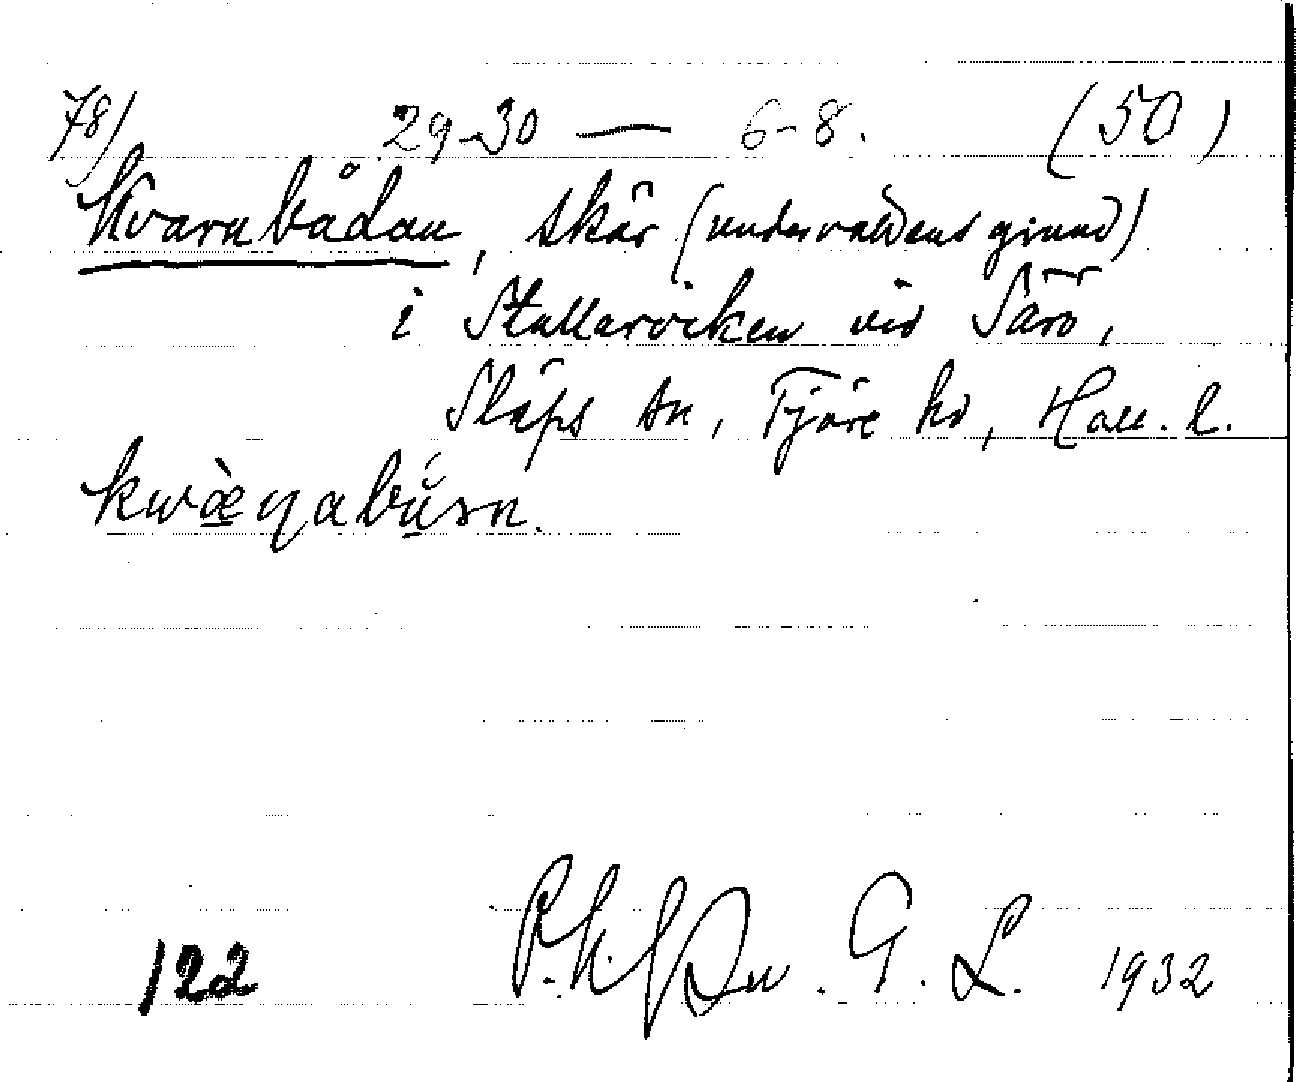 78/ 29-30 — 6-8. (50)
Kvarnbådan, skär (undervattens grund)
i Stallarviken vid Särö,
Släps sn, Fjäre hd, Hall. l.
122 G. L. 1932